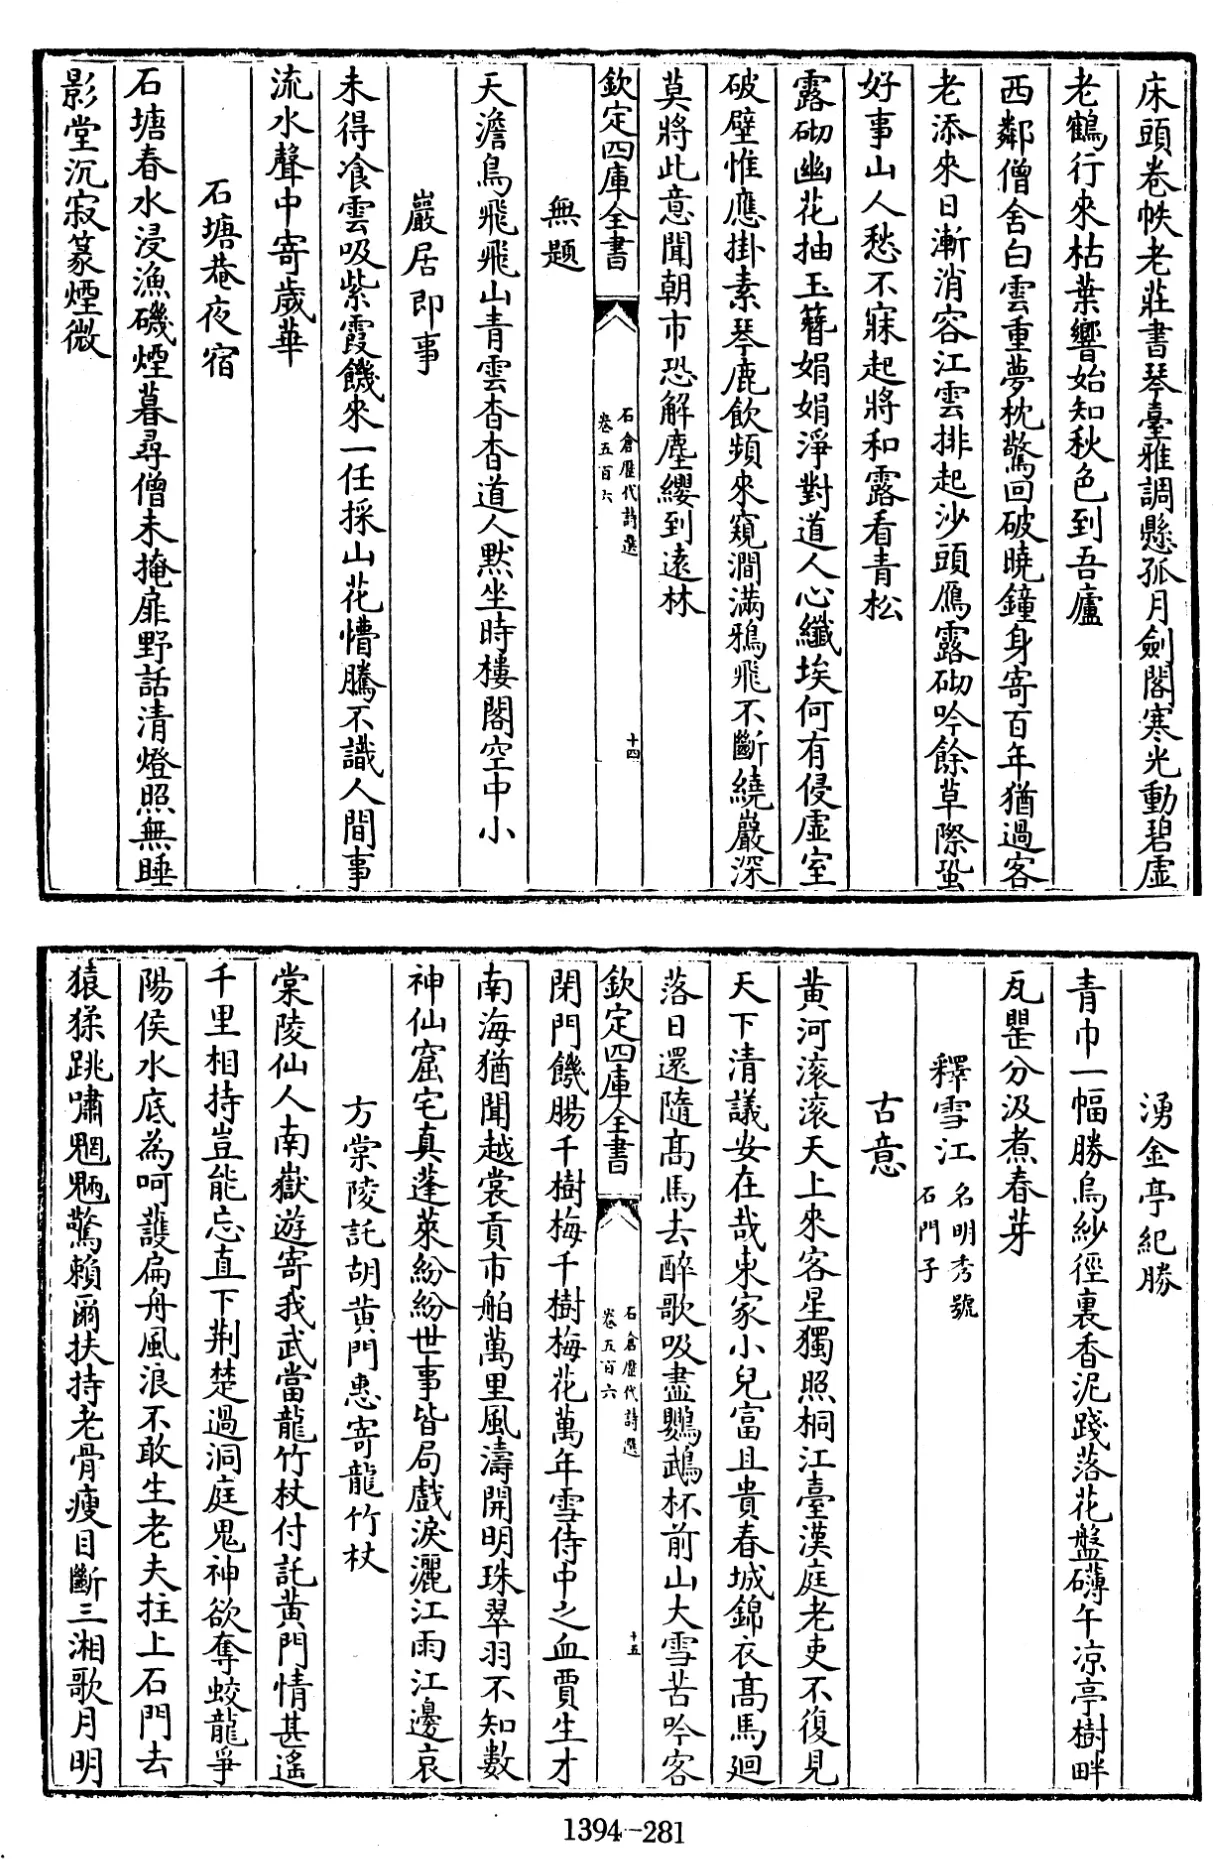 床頭卷帙老莊書琴臺雅調懸孤月劍閣寒光動碧虛
老鶴行來枯葉響始知秋色到吾廬
西鄰僧舍白雲重夢枕驚回破曉鐘身寄百年猶過客
老添來日漸消容江雲排起沙頭鴈露砌吟餘草際蛩
好事山人愁不寐起將和露看青松
露砌幽花抽玉簪娟娟淨對道人心纖埃何有侵虛室
破壁惟應掛素琴鹿飲頻來窺澗滿鴉飛不斷繞巖深
莫將此意聞朝市恐解塵纓到遠林
欽定四庫全書
石倉歷代詩選
卷五百六
十四
無題
天澹鳥飛飛山青雲杳杳道人默坐時樓閣空中小
巖居即事
未得飡雲吸紫霞饑來一任採山花懵騰不識人間事
流水聲中寄歲華
石塘菴夜宿
石塘春水浸漁磯煙暮尋僧未掩扉野話清燈照無睡
影堂沉寂篆煙微
湧金亭紀勝
青巾一幅勝烏紗徑裏香泥踐落花盤礴午凉亭樹畔
瓦罌分汲煮春芽
釋雪江
名明秀號
石門子
古意
黃河滚滚天上來客星獨照桐江臺漢庭老吏不復見
天下清議安在哉東家小兒富且貴春城錦衣高馬廻
落日還隨高馬去醉歌吸盡鸚鵡杯前山大雪苦吟客
閉門饑腸千樹梅千樹梅花萬年雪侍中之血賈生才
欽定四庫全書
石倉歷代詩選
卷五百六
十五
南海猶聞越裳貢市舶萬里風濤開明珠翠羽不知數
神仙窟宅真蓬萊紛紛世事皆局戲淚灑江雨江邊哀
方棠陵託胡黃門惠寄龍竹杖
棠陵仙人南嶽遊寄我武當龍竹杖付託黃門情甚遙
千里相持豈能忘直下荆楚過洞庭鬼神欲奪蛟龍爭
陽侯水底為呵護扁舟風浪不敢生老夫拄上石門去
猿猱跳嘯魍魎驚賴爾扶持老骨瘦目斷三湘歌月明
1394-281